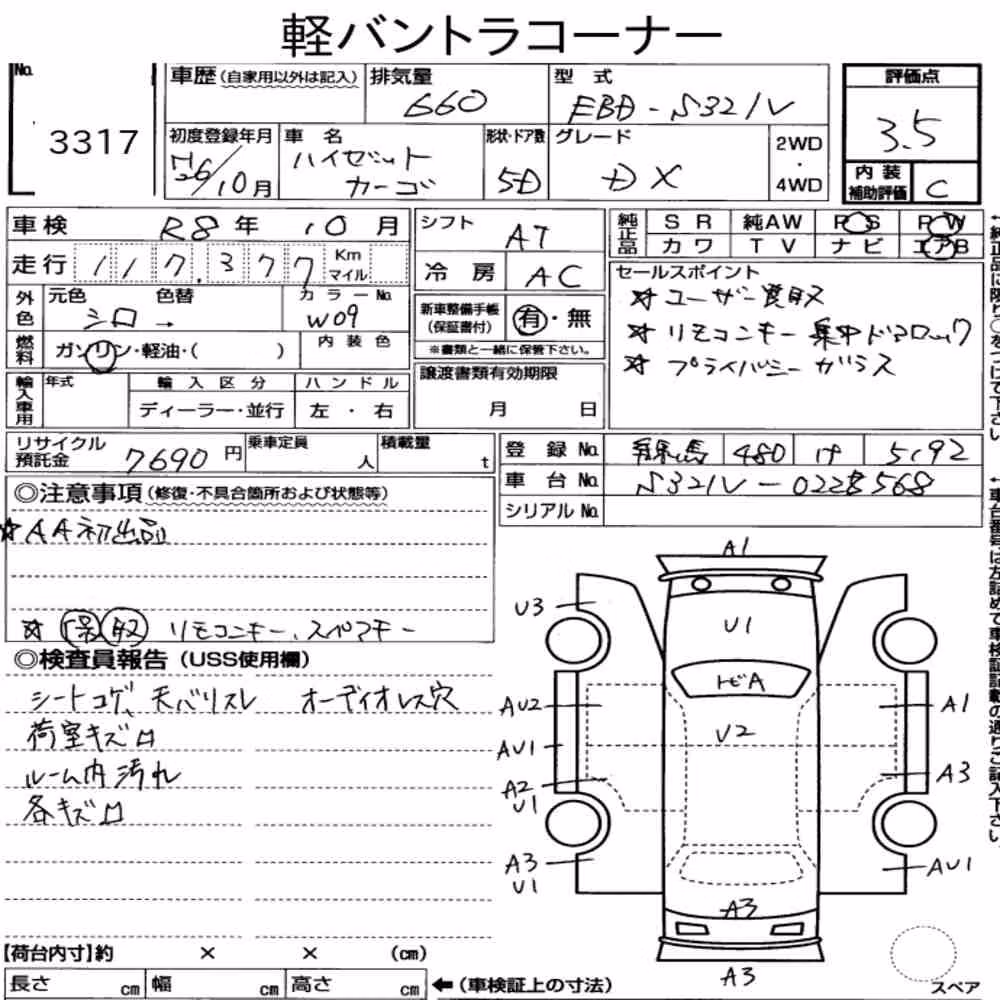 軽バントラコーナー
No. 3317
車歴 (自家用以外は記入)
排気量 660
型式 EBD-S321V
評価点 3.5
初度登録年月 H26/10月
車名 ハイゼット カーゴ
形状・ドア数 5D
グレード DX
2WD・4WD
内装補助評価 C
車検 R8年 10月
シフト AT
純正品 SR 純AW PS PW
カワ TV ナビ エアB
走行 117,377 Km マイル
冷房 AC
セールスポイント
☆ユーザー買取
☆リモコンキー集中ドアロック
☆プライバシーガラス
外色 元色 シロ → 色替 カラーNo. W09
新車整備手帳 (保証書付) 有・無
※書類と一緒に保管下さい。
燃料 ガソリン・軽油・( )
内装色
輸入車用 年式 輸入区分 ハンドル
ディーラー・並行 左・右
譲渡書類有効期限
月 日
リサイクル預託金 7690円
乗車定員 人
積載量 t
登録No. 練馬 480 け 5192
車台No. S321V-0228568
シリアルNo.
◎注意事項 (修復・不具合箇所および状態等)
☆AA初出品
☆保取 リモコンキー、スペアキー
◎検査員報告 (USS使用欄)
シートコゲ、天バリスレ オーディオレス穴
荷室キズロ
ルーム内汚れ
各キズロ
A1
U3
U1
トビA
AU2
U2
A1
AU1
A2
U1
A3
A3
U1
AU1
A3
A3
スペア
【荷台内寸】約 × × (cm)
長さ cm 幅 cm 高さ cm
←(車検証上の寸法)
←純正品に限り○をつけて下さい。
←車台番号は左詰めで車検証記載の通りご記入下さい。